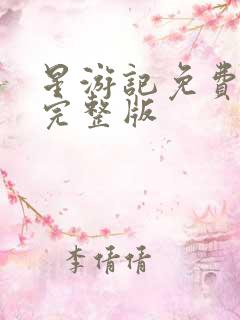 星游記免費
完整版
李倩倩